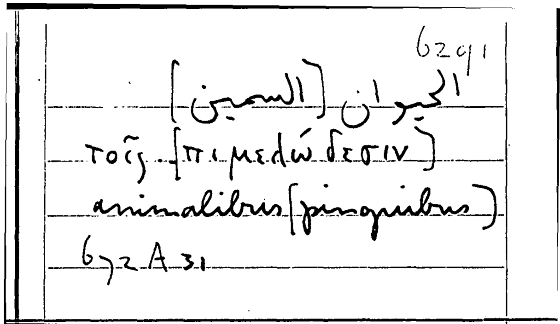 6291
الحيوان [السمين]
τοῖς [πιμελώδεσιν]
animalibus [pinguibus]
672 A 31